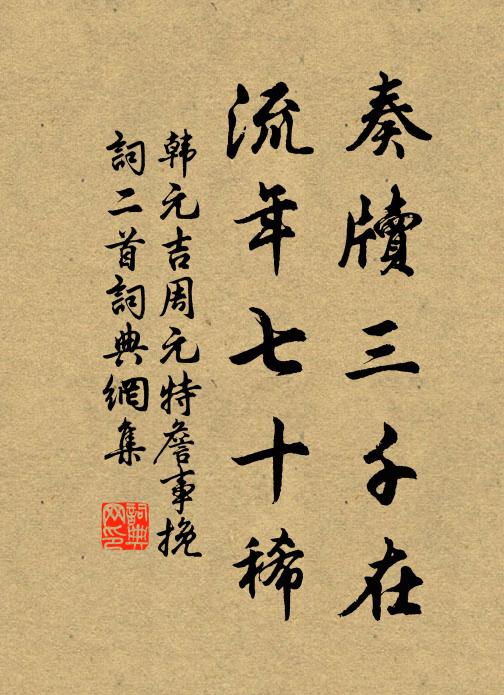 奏牘三千在
流年七十稀
韩元吉周元特詹事挽
詞二首詞典網集
詞典网印